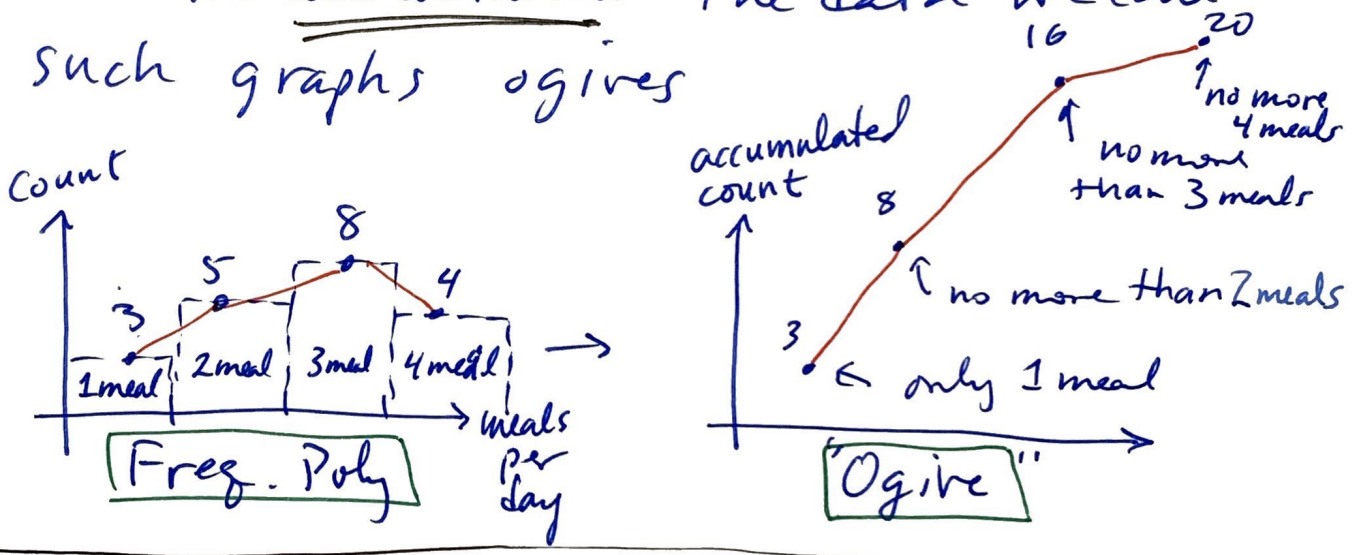 such graphs ogives
count
3
5
8
4
1 meal
2 meal
3 meal
4 meal
meals
per
day
Freq. Poly
accumulated
count
3
8
16
20
only 1 meal
no more than 2 meals
no more
than 3 meals
no more
4 meals
"Ogive"